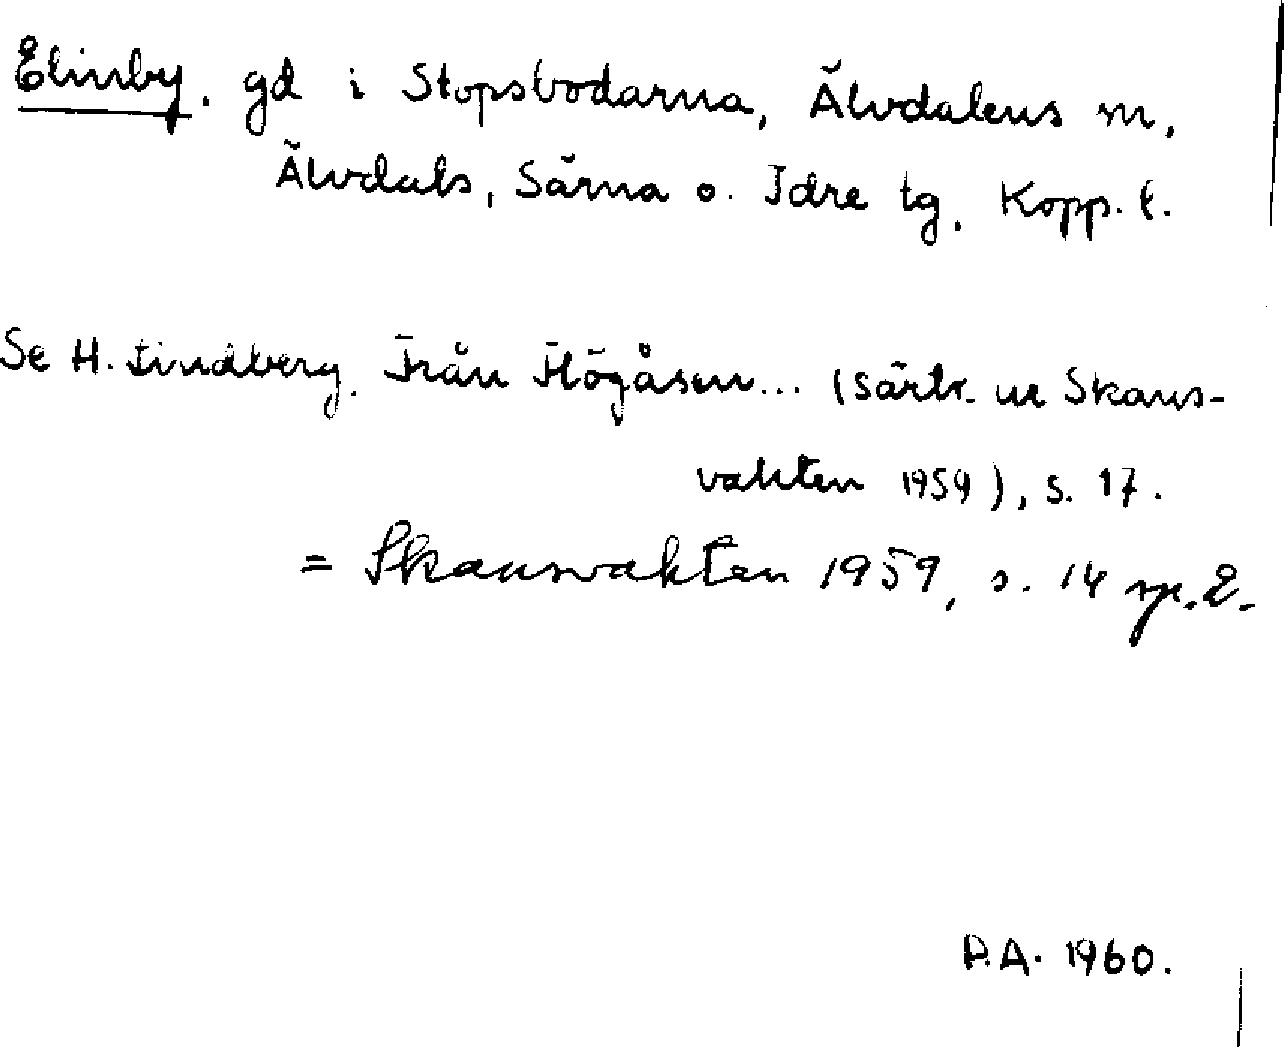 Elinby. gd i Stopsbodarna, Älvdalens m,
Älvdals, Särna o. Idre tg, Kopp. l.
Se H. Lindberg. Från Högåsen... (särtr. ur Skans-
vakten 1959), s. 17.
= Skansvakten 1959, s. 14 sp. 2.
P.A. 1960.